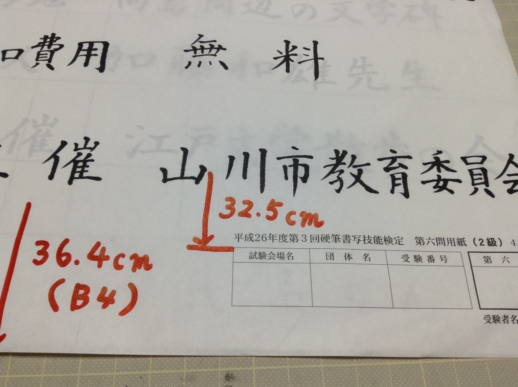 費用 無料
催 山川市教育委員会
32.5cm
36.4cm
(B4)
平成26年度第3回硬筆書写技能検定 第六問用紙(2級) 4
試験会場名 団体名 受験番号 第六
受験者名